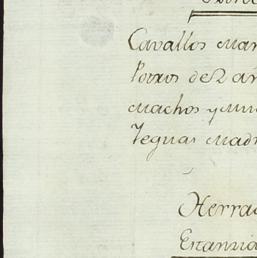 Cavallos man
Potros de 2 añ
machos y mu
Yeguas madr
Herra
Estanzia